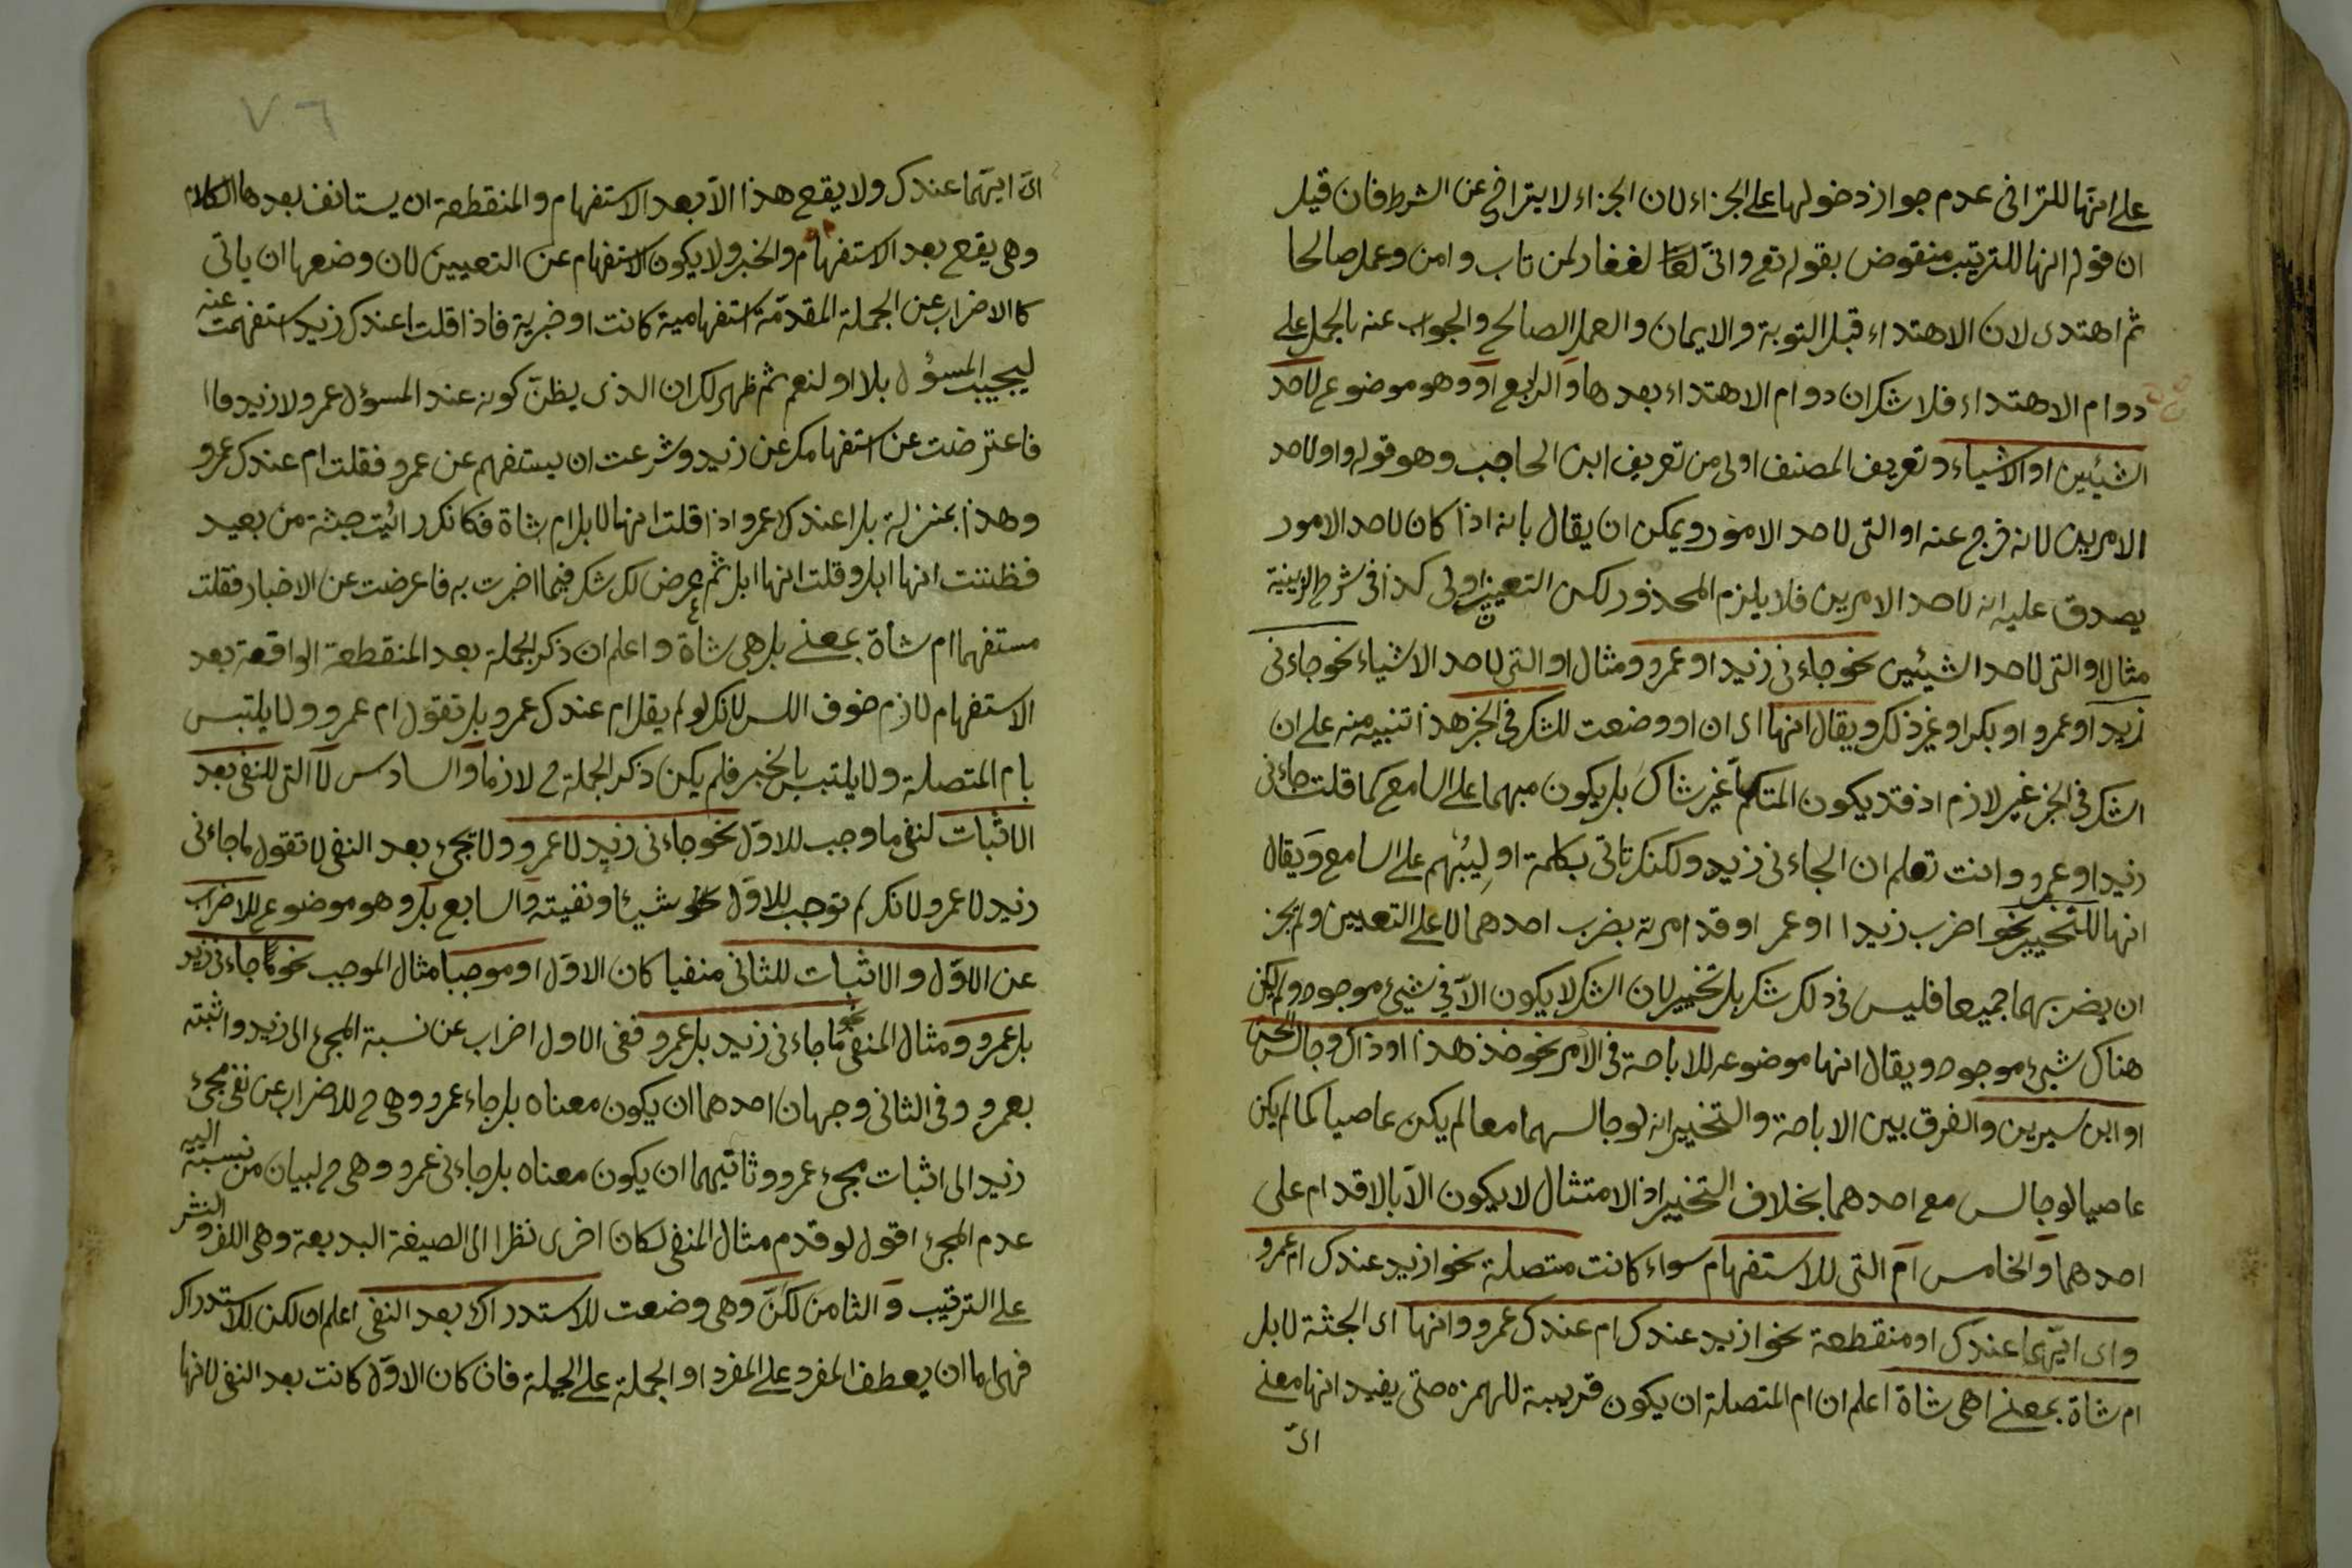 على انها للتراخى عدم جواز دخولها على الجزاء لان الجزاء لا يتراخى عن الشرط فان قيل
ان قوله انها للترتيب منقوض بقوله تع وانى لغفار لمن تاب وامن وعمل صالحا
ثم اهتدى لان الاهتداء قبل التوبة والايمان والعمل الصالح والجواب عنه بالحمل على
دوام الاهتداء فلا شك ان دوام الاهتداء بعدها والرابع او وهو موضوع لاحد
الشيئين او الاشياء وتعريف المصنف اولى من تعريف ابن الحاجب وهو قوله واو لاحد
الامرين لانه خرج عنه او التى لاحد الامور ويمكن ان يقال بانه اذا كان لاحد الامور
يصدق عليه انه لاحد الامرين فلا يلزم المحذور لكن التعيين اولى كذا فى شرح
مثال او التى لاحد الشيئين نحو جاءنى زيد او عمرو ومثال او التى لاحد الاشياء نحو جاءنى
زيد او عمرو او بكر او غير ذلك ويقال انها اى ان او وضعت للشك فى الخبر هذا تنبيه منه على ان
الشك فى الخبر غير لازم اذ قد يكون المتكلم غير شاك بل يكون مبهما على السامع كما قلت جاءنى
زيد او عمرو وانت تعلم ان الجاءنى زيد ولكنك تاتى بكلمة او ليبهم على السامع ويقال
انها للتخيير نحو اضرب زيدا او عمرا وقد امرته بضرب احدهما لا على التعيين ولم يجز
ان يضربهما جميعا فليس فى ذلك شك بل تخيير لان الشك لا يكون الا فى شيئ موجود ولم يكن
هناك شيئ موجود ويقال انها موضوعه للاباحة فى الامر نحو خذ هذا او ذاك وجالس الحسن
او ابن سيرين والفرق بين الاباحة والتخيير انه لو جالسهما معا لم يكن عاصيا كما لم يكن
عاصيا لو جالس مع احدهما بخلاف التخيير اذ الامتثال لا يكون الا بالاقدام على
احدهما والخامس ام التى للاستفهام سواء كانت متصلة نحو ازيد عندك ام عمرو
واى ايهما عندك او منقطعة نحو ازيد عندك ام عندك عمرو وانها اى الجثة لابل
ام شاة بمعنى اهى شاة اعلم ان ام المتصلة ان يكون قريبة للهمزه حتى يفيد انها معنى
اىّ
اىّ ايهما عندك ولا يقع هذا الا بعد الاستفهام والمنقطعة ان يستانف بعدها الكلام
وهى يقع بعد الاستفهام والخبر ولا يكون الاستفهام عن التعيين لان وضعها ان ياتى
كالاضراب عن الجملة المقدمة استفهامية كانت او خبرية فاذا قلت اعندك زيد استفهمت عنه
ليجيب المسؤل بلا او لنعم ثم ظهر لك ان الذى يظن كونه عند المسؤل عمرو لا زيد
فاعترضت عن استفهامك عن زيد وشرعت ان يستفهم عن عمرو فقلت ام عندك عمرو
وهذا بمنزلة بل اعندك عمرو اذا قلت انها لابل ام شاة فكانك رائيت جثة من بعيد
فظننت انها ابل وقلت انها ابل ثم عرض لك شك فيما اخبرت به فاعرضت عن الاخبار فقلت
مستفهما ام شاة بمعنى بل هى شاة واعلم ان ذكر الجملة بعد المنقطعة الواقعة بعد
الاستفهام لازم خوف اللبس لانك لو لم يقل ام عندك عمرو بل تقول ام عمرو ولا يلتبس
بام المتصلة ولا يلتبس بالخبر فلم يكن ذكر الجملة ح لازما والسادس لا التى للنفى بعد
الاثبات لنفى ما وجب للاول نحو جاءنى زيد لا عمرو ولا تجئ بعد النفى لا تقول ما جاءنى
زيد لا عمرو لانك لم توجب للاول شيئا ونفيته والسابع بل وهو موضوع للاضراب
عن الاول والاثبات للثانى منفيا كان الاول او موجبا مثال الموجب نحو جاءنى زيد
بل عمرو ومثال المنفى نحو ما جاءنى زيد بل عمرو ففى الاول اضراب عن نسبة المجئ الى زيد واثبته
بعمرو وفى الثانى وجهان احدهما ان يكون معناه بل جاء عمرو وهى ح للاضراب عن نفى مجئ
زيد الى اثبات مجئ عمرو وثانيهما ان يكون معناه بل جاءنى عمرو وهى ح لبيان من نسبة اليه
عدم المجئ اقول لو قدم مثال المنفى لكان اخرى نظرا الى الصيغة البديعة وهى اللف والنشر
على الترتيب والثامن لكن وهى وضعت للاستدراك بعد النفى اعلم ان لكن للاستدراك
فهى اما ان يعطف المفرد على المفرد او الجملة على الجملة فان كان الاول كانت بعد النفى لانها